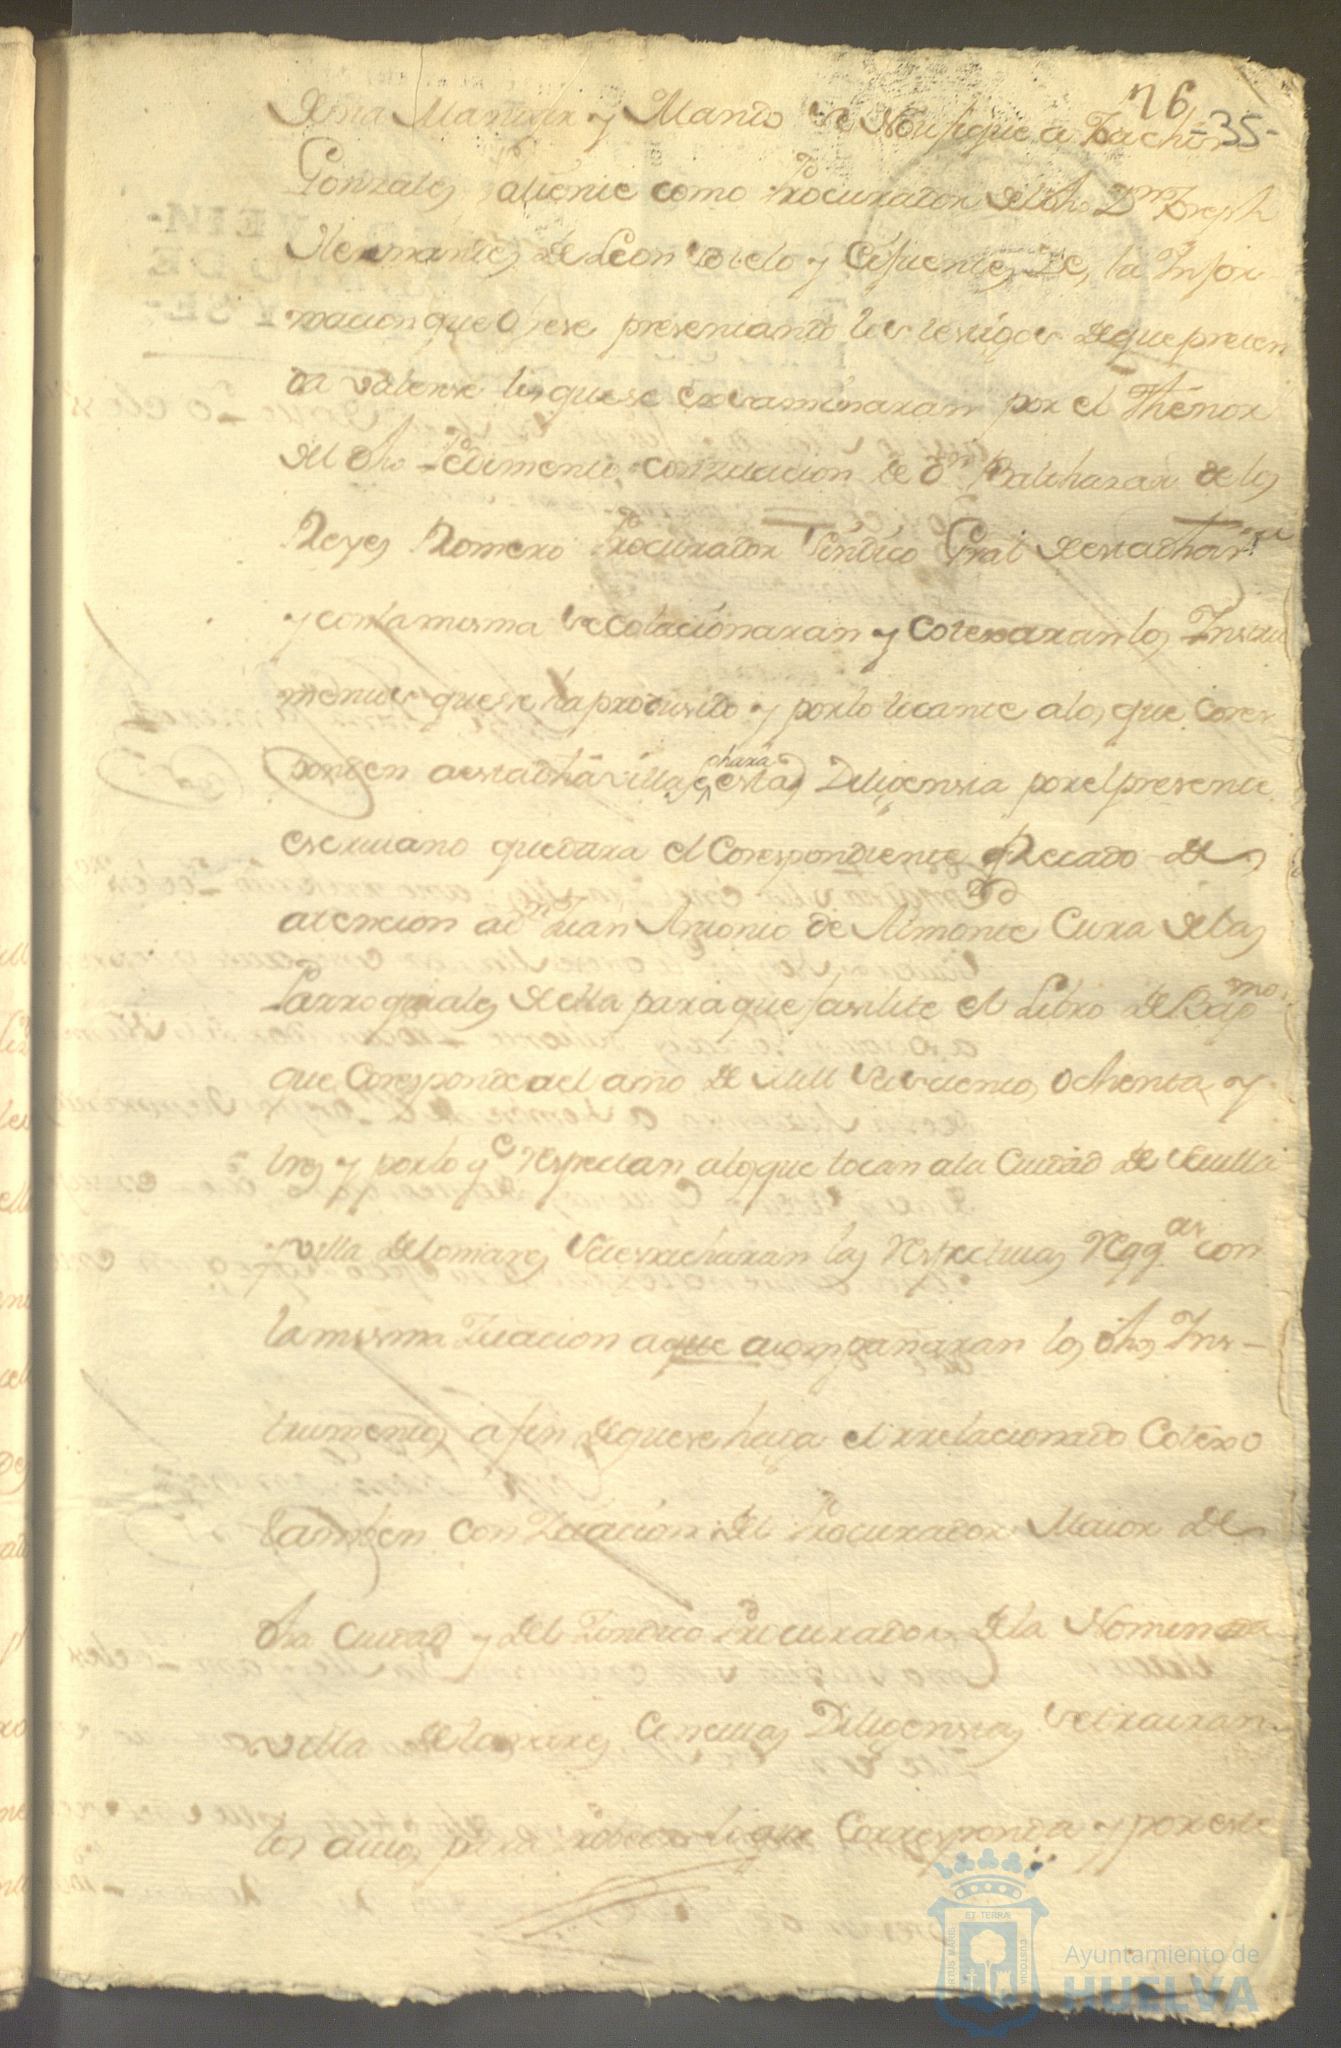 76
-35-
devia Mandar y Mando se Notifique a
Gonzales como Procurador del dho Dn Joseph
Hernandes de Leon Sotelo y Cifuentes De, la Infor
macion que Ofrese presentando los testigos de que preten
da valerse los que se exsaminaran por el Thenor
del dho Pedimento, con zitacion de Dn Balthazar de los
Reyes Romero Procurador Sindico Gral de esta dha
y con la misma se colacionaran y Cotexaran los Instru
mentos que se ha produsido y por lo tocante a los que Cores
ponden a esta dha villa, hara esta Diligensia por el presente
escriuano que dara el Corespondiente Recado de
atencion a Dn Juan Antonio de Almonte Cura de las
Parroquiales de ella para que fasilite el Libro de Bapmos
que Coresponde al año de mill seiscientos, ochenta y
tres y por lo qe Respectan a los que tocan a la Ciudad de Seuilla
y villa de tomares se despacharan las Respectiuas Reqqas con
la misma zitacion a que acompañaran los dhos Ins-
trumentos a fin de que se haga el rrelacionado Cotexo
tambien con zitacion del Procurador Maior de
dha Ciudad y del Zindico Procurador de la Nominada
villa de tomares, Diligensias se trairan
los autos para Probeer lo que Corresponda y por este
ET TERRÆ
CUSTODIA
PORTUS MARIS
Ayuntamiento de
HUELVA